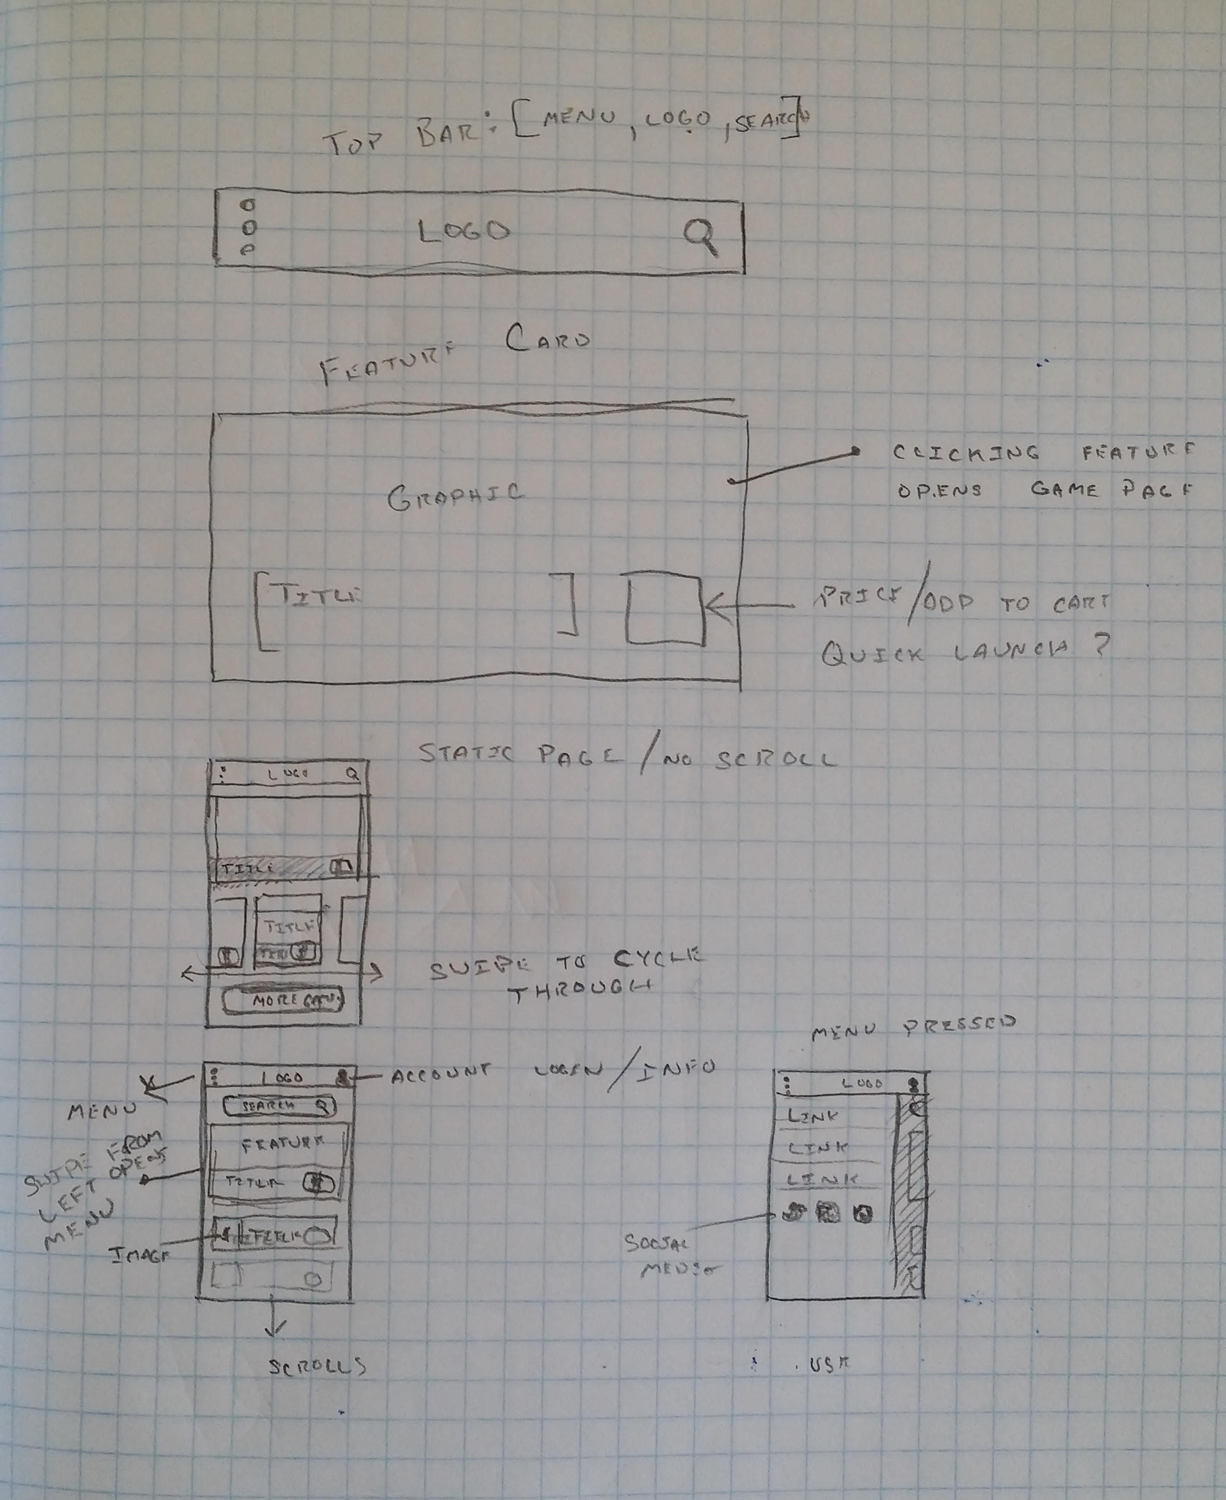 TOP BAR: [MENU, LOGO, SEARCH]
LOGO
FEATURE CARD
GRAPHIC
CLICKING FEATURE
OPENS GAME PAGE
[TITLE ]
PRICE/ADD TO CART
QUICK LAUNCH?
STATIC PAGE/NO SCROLL
LOGO
TITLE
TITLE
SWIPE TO CYCLE
THROUGH
MORE
MENU PRESSED
LOGO
ACCOUNT LOGIN/INFO
MENU
SEARCH
FEATURE
SWIPE FROM
LEFT OPENS
MENU
TITLE
IMAGE
TITLE
SCROLLS
LOGO
LINK
LINK
LINK
SOCIAL
MEDIA